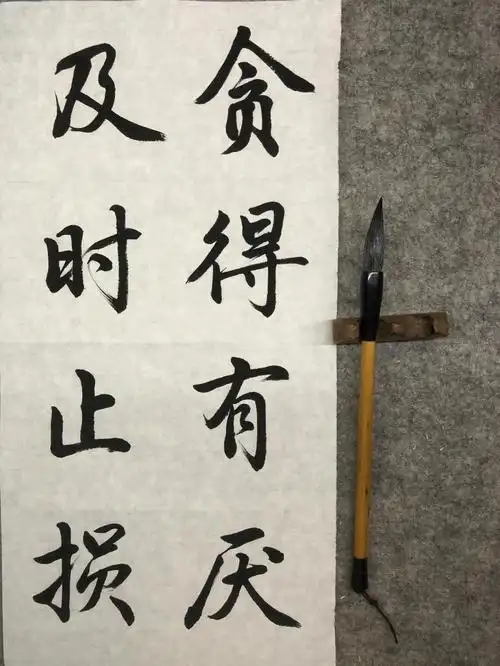 贪得有厌
及时止损